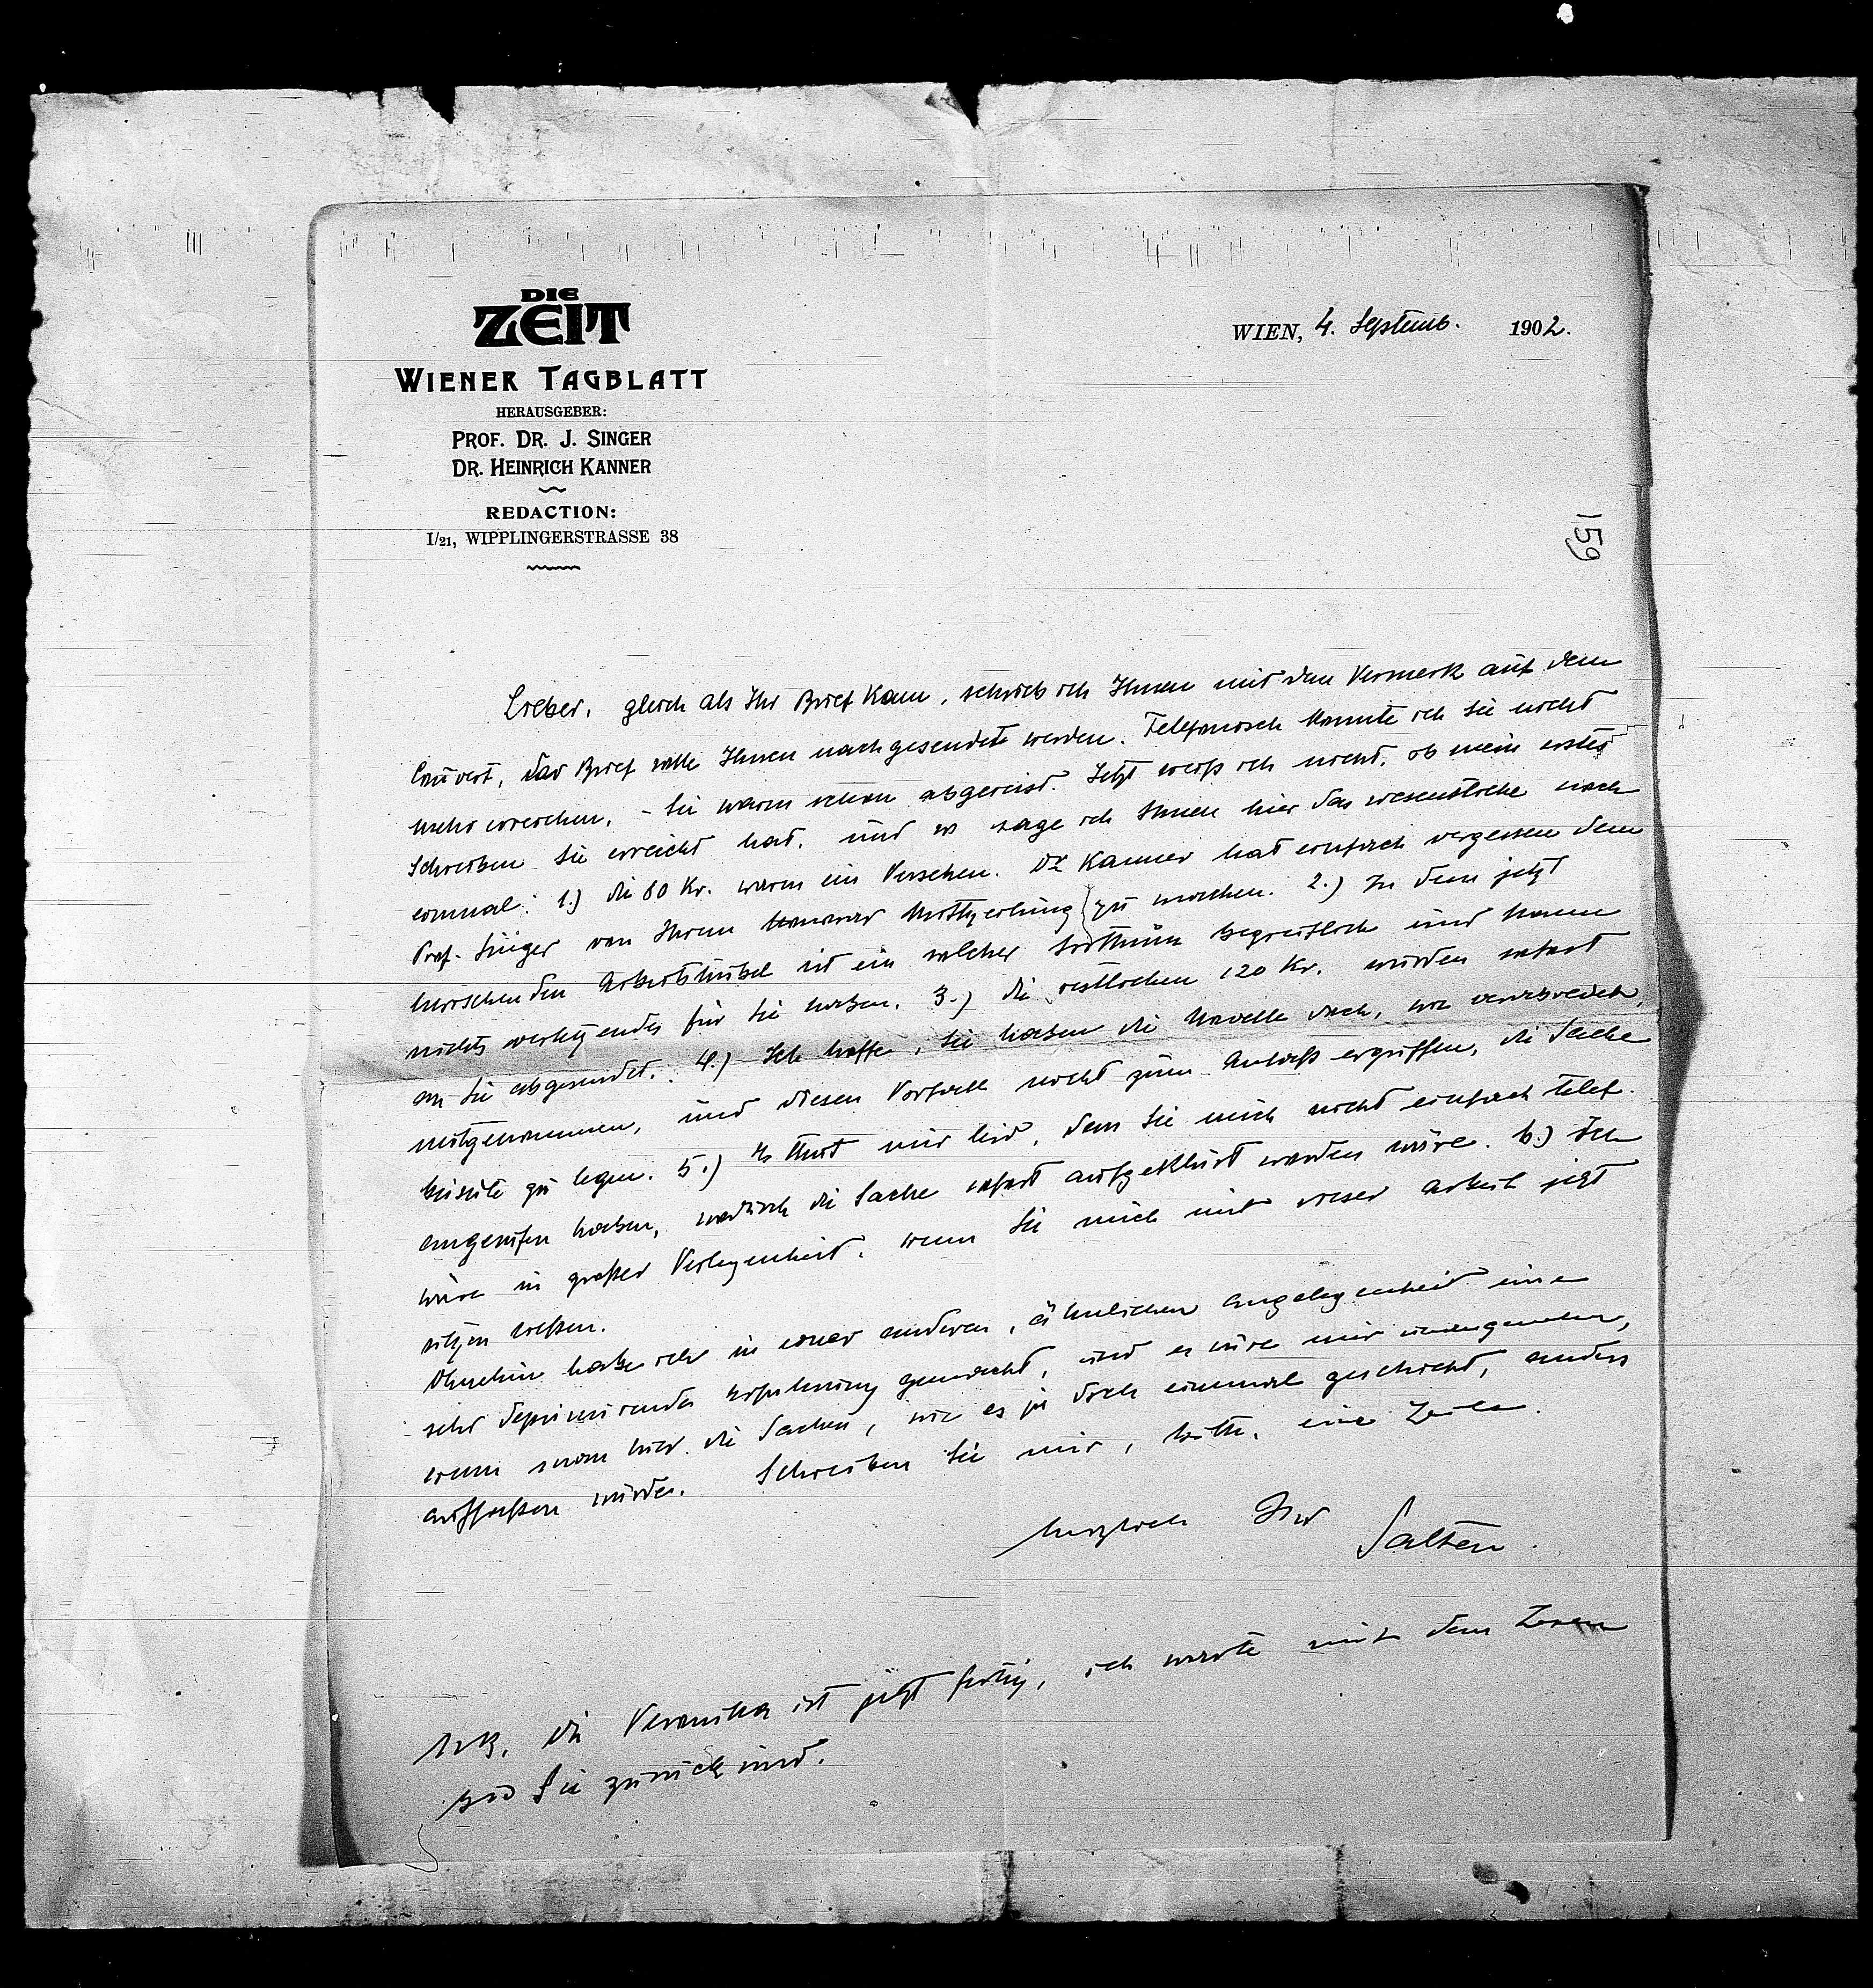 DIE
ZEIT
WIENER TAGBLATT
HERAUSGEBER:
PROF. DR. J. SINGER
DR. HEINRICH KANNER
REDACTION:
I/21, WIPPLINGERSTRASSE 38
WIEN, 4. Septemb. 1902.
159
Lieber, gleich als Ihr Brief kam, schrieb ich Ihnen mit dem Vermerk auf dem
Couvert, der Brief solle Ihnen nachgesendet werden. Telefonisch konnte ich Sie nicht
mehr erreichen, – Sie waren schon abgereist. Jetzt weiß ich nicht, ob mein erstes
Schreiben Sie erreicht hat, und so sage ich Ihnen hier das wesentliche noch
einmal: 1.) die 80 Kr. waren ein Versehen. Dr Kanner hat einfach vergessen dem
Prof. Singer von Ihrem Honorar Mittheilung zu machen. 2.) In dem jetzt
herrschenden Arbeitstrubel ist ein solcher Irrthum begreiflich und kann
nichts verletzendes für Sie haben. 3.) die restlichen 120 Kr. wurden sofort
an Sie abgesendet. 4.) Ich hoffe, Sie haben die Novelle doch, wie verabredet,
mitgenommen, und diesen Vorfall nicht zum Anlaß ergriffen, die Sache
beiseite zu legen. 5.) Es thut mir leid, dass Sie mich nicht einfach telef.
angerufen haben, wodurch die Sache sofort aufgeklärt worden wäre. 6.) Ich
wäre in großer Verlegenheit, wenn Sie mich mit dieser Arbeit jetzt
sitzen ließen.
Ohnehin habe ich in einer anderen, ähnlichen Angelegenheit eine
sehr deprimirende Erfahrung gemacht, und es wäre mir unangenehm,
wenn man hier die Sachen, wie es ja doch einmal geschieht, anders
auffassen würde. Schreiben Sie mir, bitte, eine Zeile.
herzlich Ihr
Salten.
NB. die Veronika ist jetzt fertig, ich warte mit dem Lesen
bis Sie zurück sind.